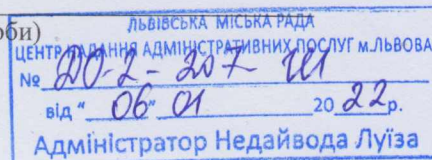 оби)
ЛЬВІВСЬКА МІСЬКА РАДА
ЦЕНТР НАДАННЯ АДМІНІСТРАТИВНИХ ПОСЛУГ м.ЛЬВОВА
№ ДО-2-207
від "06" 01 2022р.
Адміністратор Недайвода Луїза